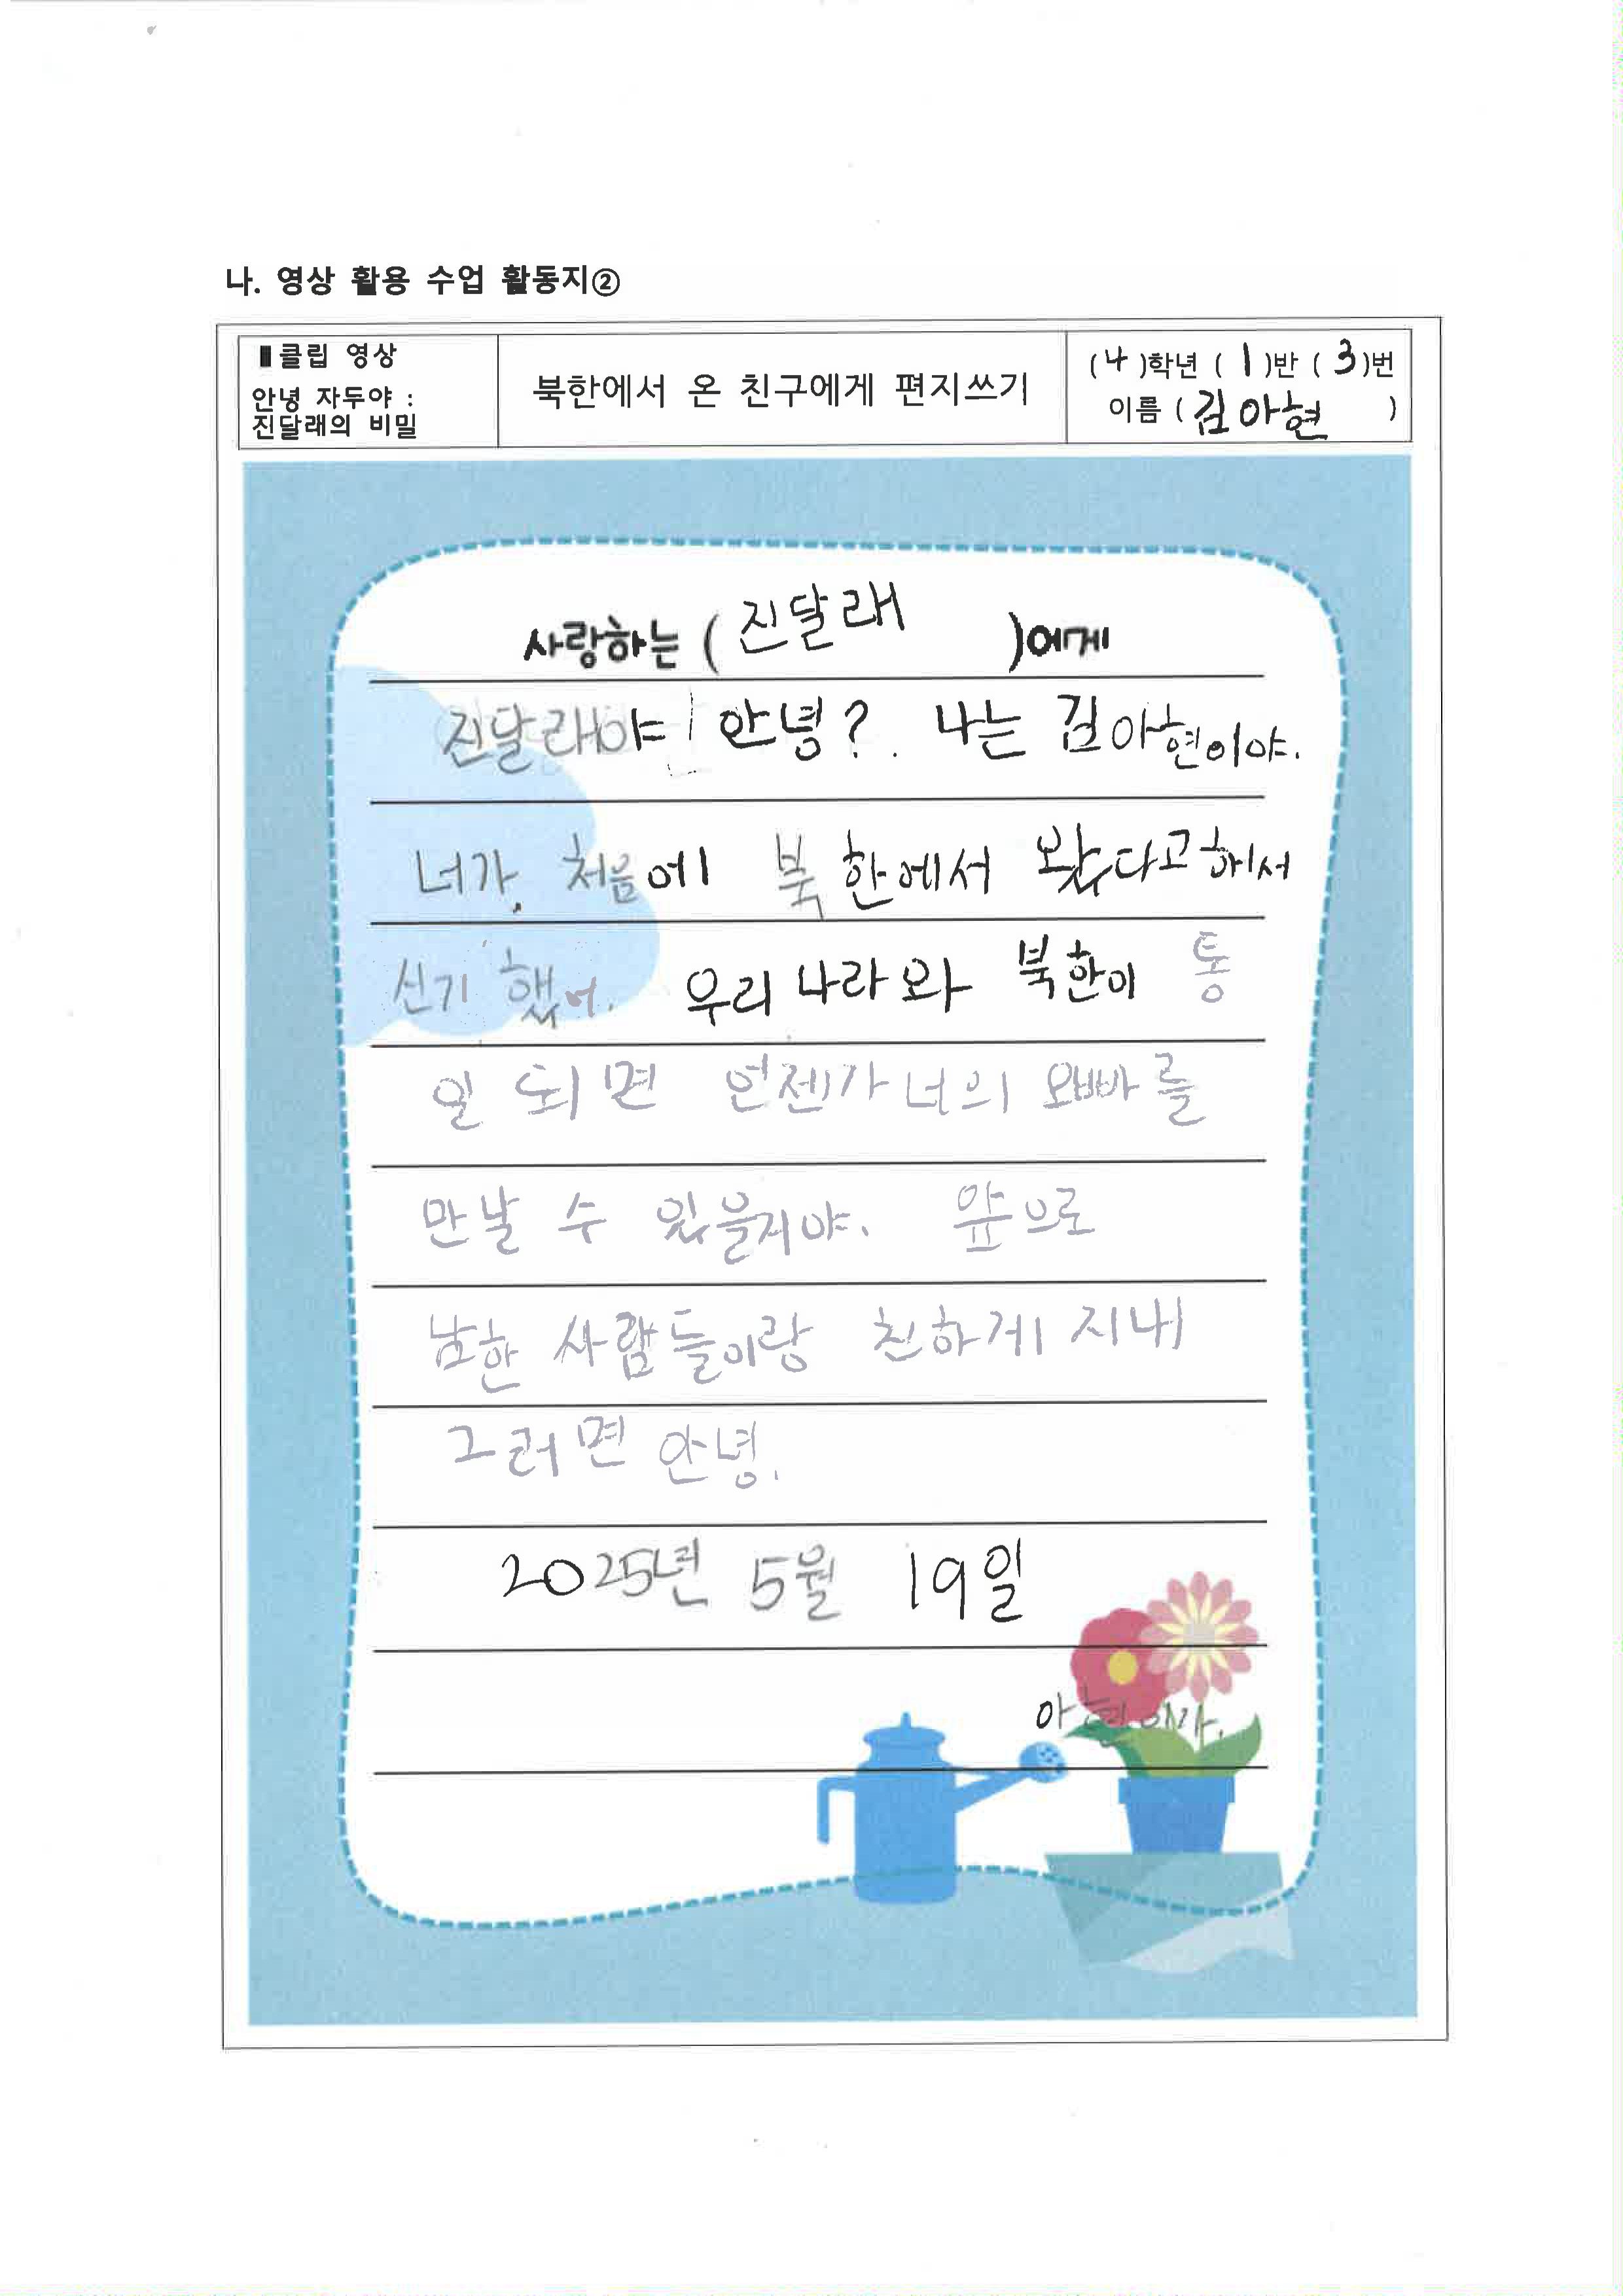 나. 영상 활용 수업 활동지②
▮클립 영상
안녕 자두야 :
진달래의 비밀
북한에서 온 친구에게 편지쓰기
(4)학년 (1)반 (3)번
이름 (김아현)
사랑하는 (진달래)에게
진달래야 안녕? 나는 김아현이야.
너가 처음에 북한에서 왔다고해서
신기했어. 우리나라와 북한이 통
일 되면 언젠가 너의 오빠를
만날 수 있을거야. 앞으로
남한 사람들이랑 친하게 지내
그러면 안녕.
2025년 5월 19일
아현이가.